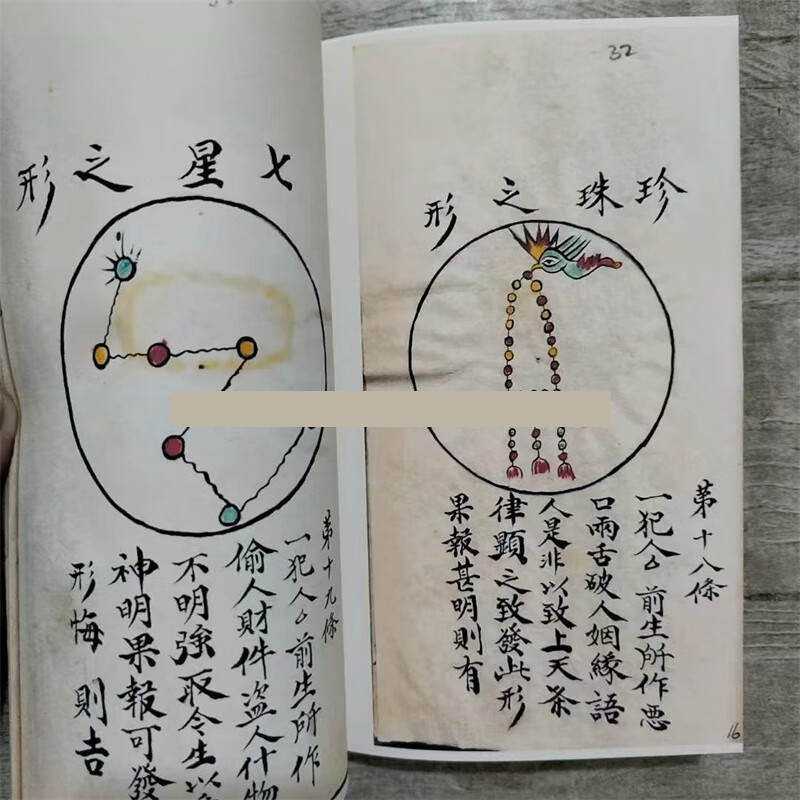 32
珍珠之形
第十八條
一犯人厶前生所作惡
口兩舌破人姻緣語
人是非以致上天条
律顯之致發此形
果報甚明則有
16
七星之形
第十九條
一犯人厶前生所作
偷人財件盜人什物
不明強取今生以
神明果報可發
形悔則吉